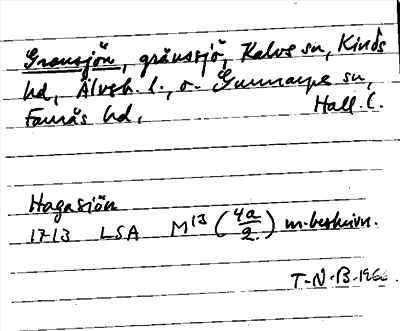 Gränsjön, gränssjö, Kalvs sn, Kinds
hd, Älvsb. l., o. Gunnarps sn,
Faurås hd, Hall. l.
Hagasjön
1713 LSA M13 (4a/2) m. beskrivn.
T-N-B-1966.